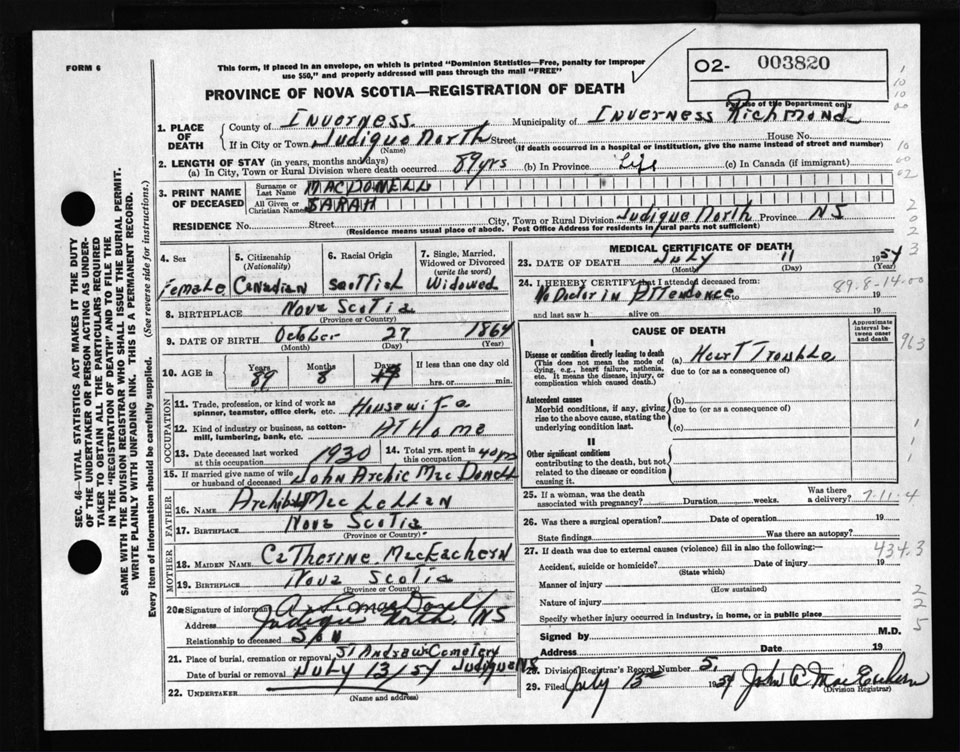 FORM 6
This form, if placed in an envelope, on which is printed "Dominion Statistics—Free, penalty for improper
use $50," and properly addressed will pass through the mail "FREE"
O2- 003820
For use of the Department only
PROVINCE OF NOVA SCOTIA—REGISTRATION OF DEATH
1. PLACE OF DEATH
County of Inverness. Municipality of Inverness Richmond
If in City or Town Judique North Street House No.
(Name) (If death occurred in a hospital or institution, give name instead of street and number)
2. LENGTH OF STAY (in years, months and days)
(a) In City, Town or Rural Division where death occurred 89 yrs (b) In Province Life (c) In Canada (if immigrant)
3. PRINT NAME OF DECEASED
Surname or Last Name MACDONELL
All Given or Christian Names SARAH
RESIDENCE No. Street City, Town or Rural Division Judique North Province NS
(Residence means usual place of abode. Post Office Address for residents in rural parts not sufficient)
4. Sex
Female
5. Citizenship
(Nationality)
Canadian
6. Racial Origin
Scottish
7. Single, Married,
Widowed or Divorced
(write the word)
Widowed
8. BIRTHPLACE Nova Scotia
(Province or Country)
9. DATE OF BIRTH October 27 1864
(Month) (Day) (Year)
10. AGE in
Years Months Days If less than one day old
89 8 hrs. or min.
OCCUPATION
11. Trade, profession, or kind of work as
spinner, teamster, office clerk, etc. Housewife
12. Kind of industry or business, as cotton-
mill, lumbering, bank, etc. At Home
13. Date deceased last worked
at this occupation 1930
14. Total yrs. spent in
this occupation 40 yrs
15. If married give name of wife
or husband of deceased John Archie MacDonell
FATHER
16. NAME MacLellan
17. BIRTHPLACE Nova Scotia
(Province or Country)
MOTHER
18. MAIDEN NAME Catherine MacEachern
19. BIRTHPLACE Nova Scotia
(Province or Country)
20. Signature of informant
Address Judique North, NS
Relationship to deceased Son
21. Place of burial, cremation or removal St Andrews Cemetery
Date of burial or removal July 13/54 Judique NS
22. UNDERTAKER
(Name and address)
MEDICAL CERTIFICATE OF DEATH
23. DATE OF DEATH July 11 1954
(Month) (Day) (Year)
24. I HEREBY CERTIFY that I attended deceased from:
No Doctor in Attendance to 19
and last saw h alive on 19
89.8-14.00
CAUSE OF DEATH
Approximate
interval between
onset and death
I
Disease or condition directly leading to death (a) Heart Trouble
(This does not mean the mode of due to (or as a consequence of)
dying, e.g., heart failure, asthenia,
etc. It means the disease, injury, or
complication which caused death.)
Antecedent causes (b)
Morbid conditions, if any, giving due to (or as a consequence of)
rise to the above cause, stating the
underlying condition last. (c)
II
Other significant conditions
contributing to the death, but not
related to the disease or condition
causing it.
25. If a woman, was the death
associated with pregnancy? Duration weeks. Was there a delivery?
7-11-4
26. Was there a surgical operation? Date of operation 19
State findings Was there an autopsy?
27. If death was due to external causes (violence) fill in also the following:—
434.3
Accident, suicide or homicide? Date of injury 19
(State which)
Manner of injury
(How sustained)
Nature of injury
Specify whether injury occurred in industry, in home, or in public place
Signed by M.D.
Address Date 19
28. Division Registrar's Record Number 5.
29. Filed July 13th 1954 John A MacEachern
(Division Registrar)
SEC. 46—VITAL STATISTICS ACT MAKES IT THE DUTY
OF THE UNDERTAKER OR PERSON ACTING AS UNDER-
TAKER TO OBTAIN ALL THE PARTICULARS REQUIRED
IN THE "REGISTRATION OF DEATH" AND TO FILE THE
SAME WITH THE DIVISION REGISTRAR WHO SHALL ISSUE THE BURIAL PERMIT.
WRITE PLAINLY WITH UNFADING INK. THIS IS A PERMANENT RECORD.
Every item of information should be carefully supplied. (See reverse side for instructions.)